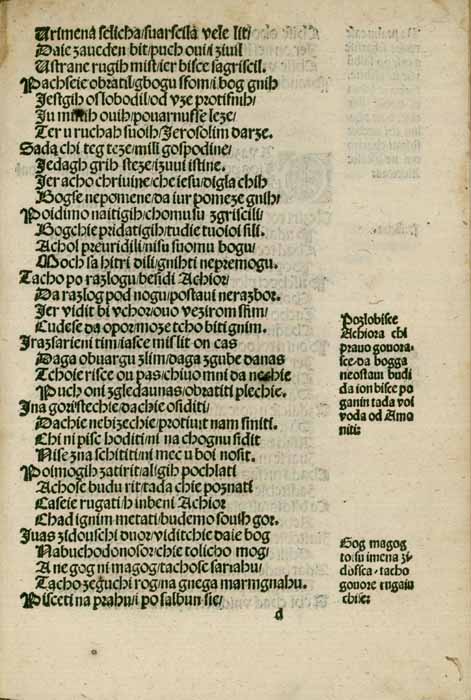 Urimena selicha/suarseila vele liti
Daie zaueden bit/puch oui/i ziuil
Ustrane rugih mist/er bisce sagriscil.
Pachseie obratil/gbogu sfom/i bog gnih
Jestgih oslobodil/od vze protifnih/
Ju ouih/pouarnusse leze/
Ter u ruchah suoih/Jerosolim darze.
Sada chi teg teze/mili gospodine/
Jedagh grih steze/izuui istine.
Jer acho chriuine/che iesu/digla chih
Bogse nepomene/da iur pomeze gnih/
Poidimo naitigih/chomusu zgriscili/
Bogchie pridatigih/tudie tuoioi sili.
Achol preuridili/nisu suomu bogu/
Moch sa hitri dili/gnihti nepremogu.
Tacho po razlogu/besidi Achior/
Da razlog pod nogu/postaui nerazbor.
Jer vidit bi vchor/ouo vezirom sfim/
Cudese da opor/moze tcho biti gnim.
Jrazsarieni tim/iasce mislit on cas
Daga obuargu zlim/daga zgube danas
Tchoie risce ou pas/chiuo mni da neschie
Puch oni zgledaunas/obratiti plechie.
Jna goristechie/dachie osiditi/
Dachie nebizechie/protiuit nam smiti.
Chi ni pisc hoditi/ni na chognu sidit
Nise zna schititi/ni mec u boi nosit.
Poimogih zatirit/al/gih pochlati
Achose budu rit/tada chie poznati
Caseie rugati/h inbeni Achior
Chad ignim metati/budemo souish gor.
Juas zidouschi duor/viditchie daie bog
Nabuchodonosor/chie tolicho mog/
A ne gog ni magog/tachose sariahu/
Tacho zeguchi rog/na gnega marmgnahu.
Pisceti na prahu/i po salbun sie/
d
Pozlobisce
Achiora chi
prauo gouora-
sce-da bogga
neostaui budi
da ion bisce po
ganin tada voi
voda od Amo
niti:
Gog magog
tosu imena zi-
dofsca-tacho
gouore rugaiu
chise: